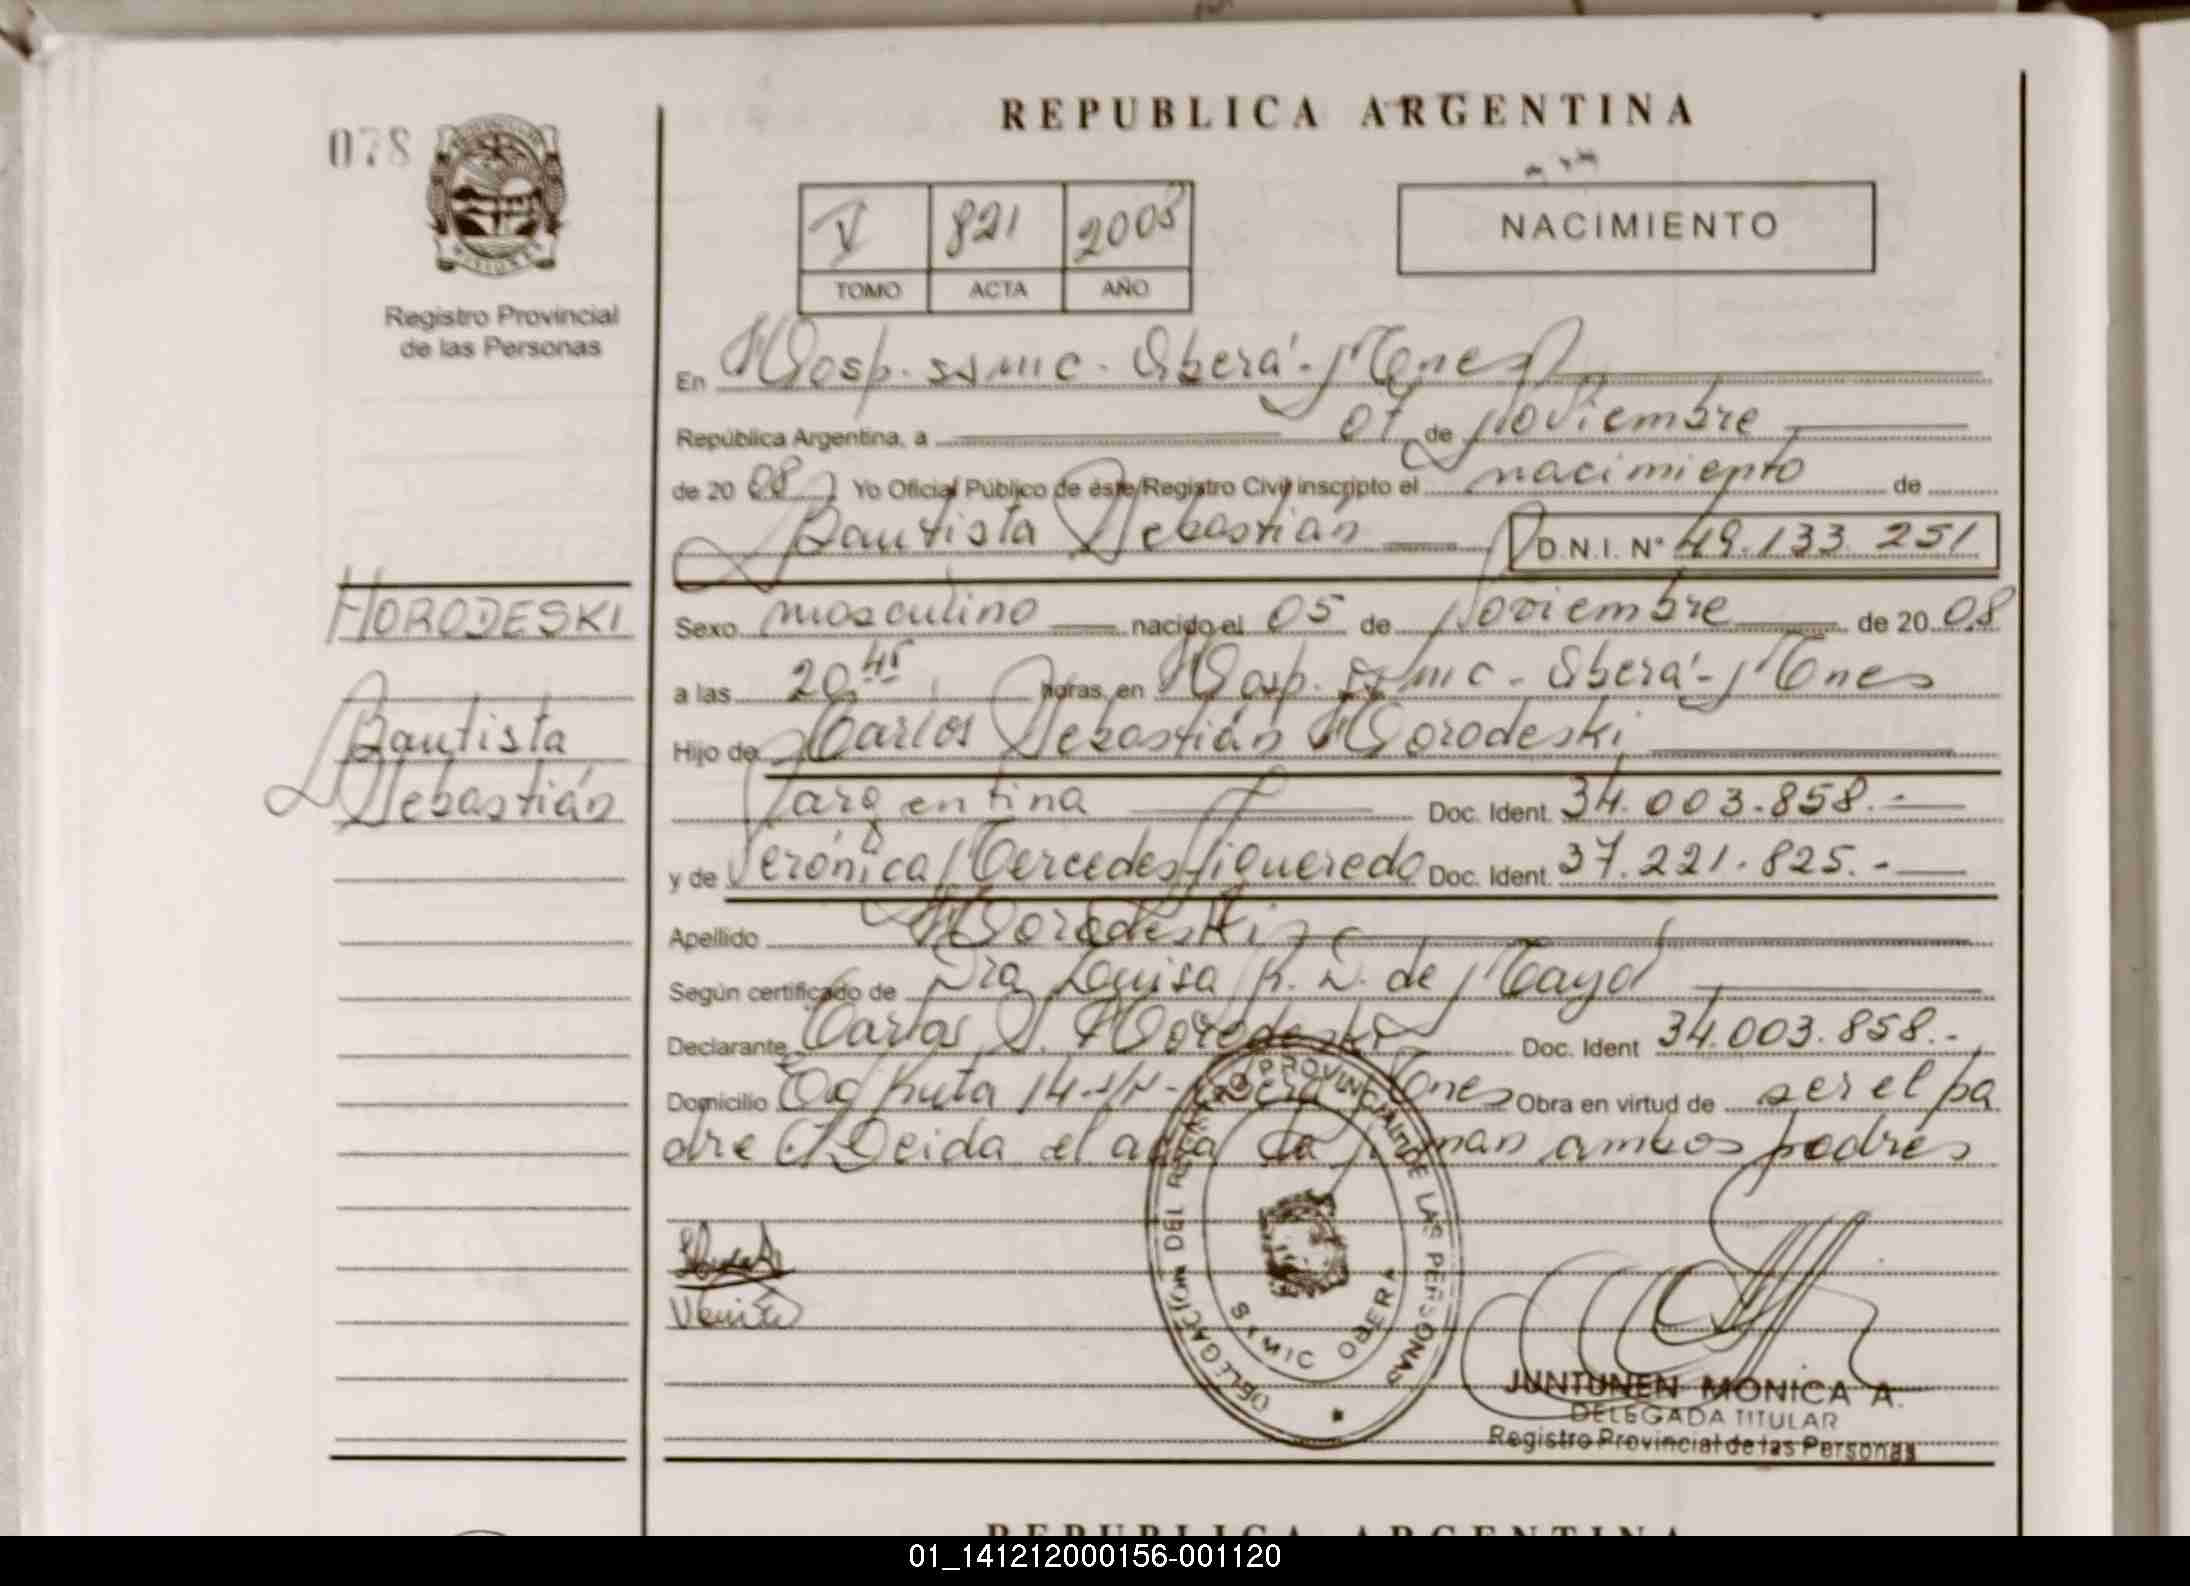 REPUBLICA ARGENTINA
078
V 821 2008
TOMO ACTA AÑO
NACIMIENTO
Registro Provincial
de las Personas
En Hosp. SAMIC - Oberá - Mnes
República Argentina, a 07 de Noviembre
de 20 08 Yo Oficial Público de éste Registro Civil inscripto el nacimiento de
Bautista Sebastián D.N.I. Nº 49.133.251
HORODESKI
Bautista
Sebastián
Sexo masculino nacido el 05 de Noviembre de 20 08
a las 20 45 horas, en Hosp. SAMIC - Oberá - Mnes
Hijo de Carlos Sebastián Horodeski
argentina Doc. Ident. 34.003.858.-
y de Verónica Mercedes Figueredo Doc. Ident. 37.221.825.-
Apellido Horodeski
Según certificado de Dra Luisa R. D. de Mayol
Declarante Carlos S. Horodeski Doc. Ident 34.003.858.-
Domicilio Ruta 14 S/N - Oberá Mnes Obra en virtud de ser el pa
dre Leida el acta la firman ambos padres
DELEGACION DEL REGISTRO PROVINCIAL DE LAS PERSONAS
SAMIC OBERA
JUNTUNEN MONICA A.
DELEGADA TITULAR
Registro Provincial de las Personas
REPUBLICA ARGENTINA
01_141212000156-001120